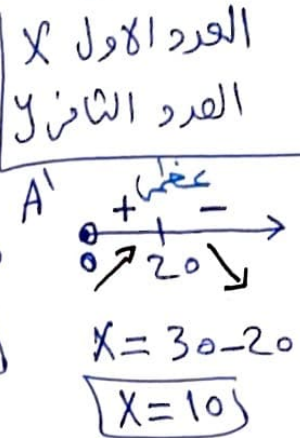 العدد الاول X
العدد الثاني y
عظمى
A'
+ -
0 20
X = 30-20
X = 10